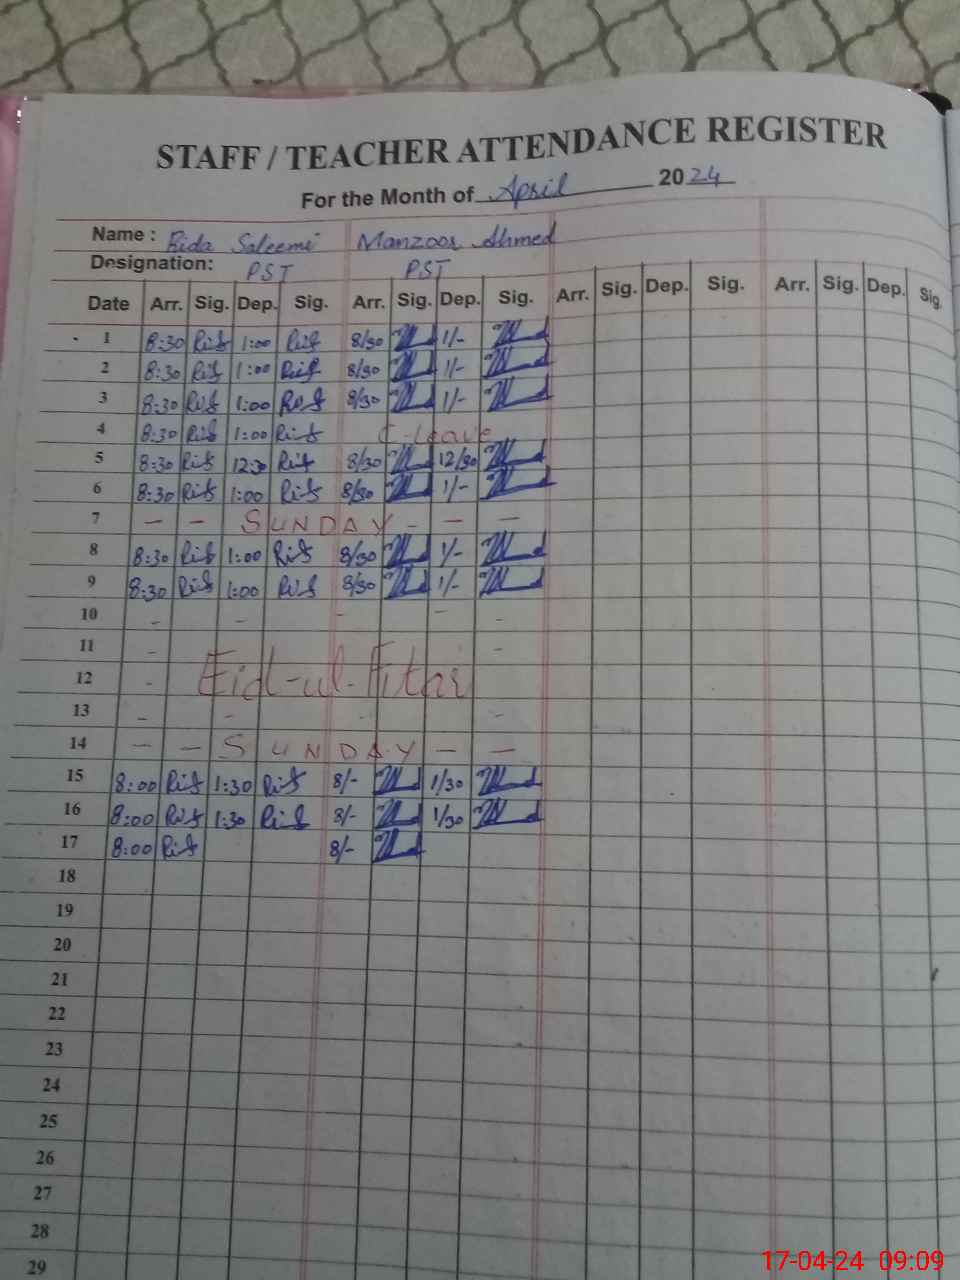 STAFF / TEACHER ATTENDANCE REGISTER
For the Month of April 2024
Name : Rida Saleemi Manzoor Ahmed
Designation: PST PST
Date Arr. Sig. Dep. Sig. Arr. Sig. Dep. Sig. Arr. Sig. Dep. Sig. Arr. Sig. Dep. Sig.
1 8:30 1:00 8/30 1/-
2 8:30 1:00 8/30 1/-
3 8:30 1:00 8/30 1/-
4 8:30 1:00 C-leave
5 8:30 12:30 8/30 12/30
6 8:30 1:00 8/30 1/-
7 - - SUNDAY - - -
8 8:30 1:00 8/30 1/-
9 8:30 1:00 8/30 1/-
10 - - - - -
11 - -
12 - Eid-ul-Fitar
13 - - - -
14 - - SUNDAY - -
15 8:00 1:30 8/- 1/30
16 8:00 1:30 8/- 1/30
17 8:00 8/-
18
19
20
21
22
23
24
25
26
27
28
29
17-04-24 09:09